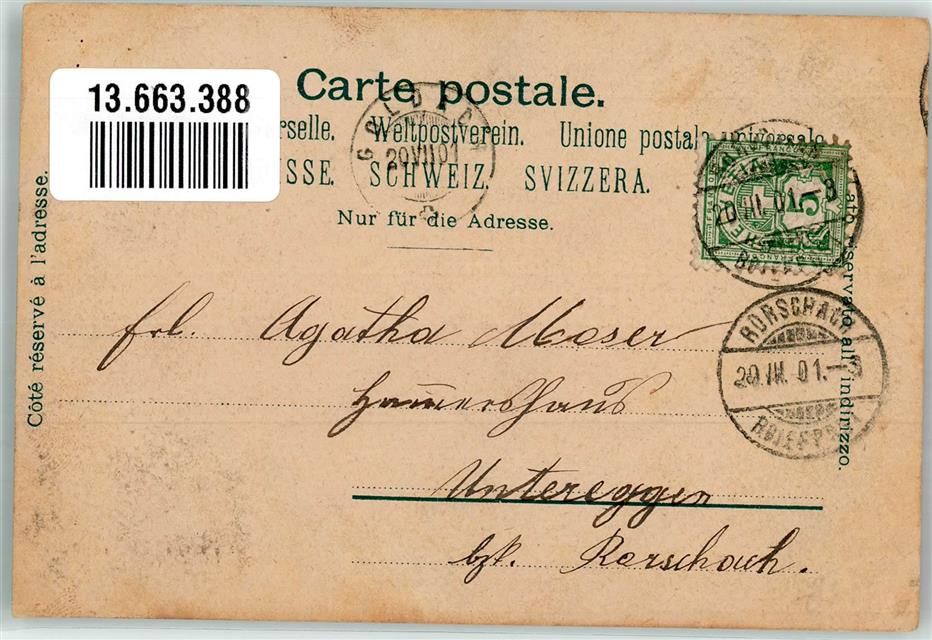 13.663.388
Carte postale.
rselle. Weltpostverein. Unione postale universale
SSE. SCHWEIZ. SVIZZERA.
Nur für die Adresse.
Côté réservé à l'adresse.
ato riservato all'indirizzo.
GOLDACH
20 VII 01
5
RORSCHACH
20.VII.01.-3
BRIEFPOST
Frl. Agatha Moser
Untereggen
bzk. Rorschach.